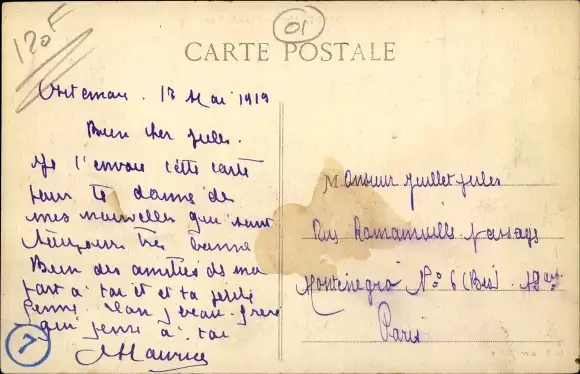 120F
01
CARTE POSTALE
13 Mai 1919
Bien cher Jules.
Je t'envoie cette carte
pour te donné des
mes nouvelles qui sont
toujours très bonne
Bien des amitiés de ma
part à toi et et ta petite
femme. Ton beau-frère
qui pense à toi
Maurice
7
Monsieur Juillet Jules
Rue Romainville. Passage
Montenegro No 6 (Bis). 19 arr.
Paris